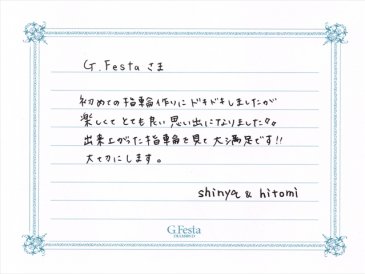 G.Festa さま
初めての指輪作りにドキドキしましたが
楽しくてとても良い思い出になりました♡。
出来上がった指輪を見て大満足です!!
大切にします。
shinya & hitomi
G.Festa